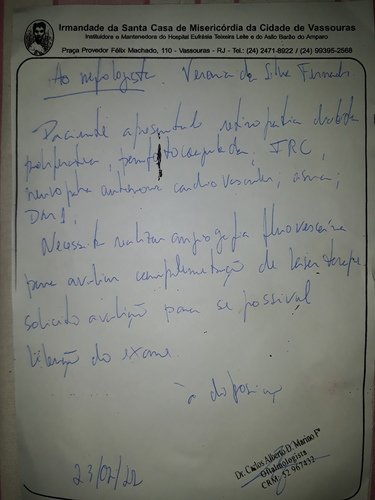 Irmandade da Santa Casa de Misericórdia da Cidade de Vassouras
Instituidora e Mantenedora do Hospital Eufrásia Teixeira Leite e do Asilo Barão do Amparo
Praça Provedor Félix Machado, 110 - Vassouras - RJ - Tel.: (24) 2471-8922 / (24) 99395-2568
Ao nefologista. Veronica da Silva Fernandes
Paciente apresenta retinopatia diabética
proliferativa, panfotocoagulada, IRC,
neuropatia autonômica cardiovascular, asma,
DM1.
Necessita realizar angiografia fluoresceína
para avaliar complementação de laser terapia
solicito avaliação para se possível
liberação do exame.
à disposição
Dr. Carlos Alberto D. Marino Fº
Oftalmologista
CRM: 52 967432
23/02/22